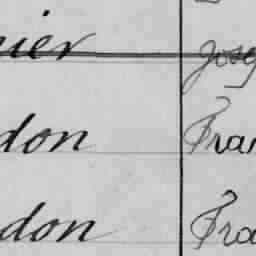 nier Jose
don Fran
don Fra